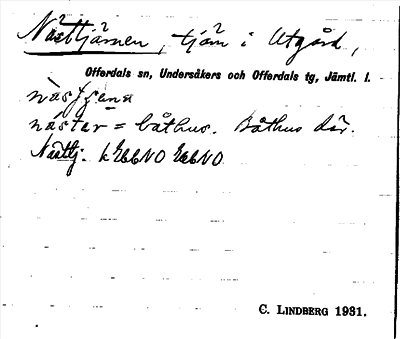 Nästtjärnen, tjärn i Utgård,
Offerdals sn, Undersåkers och Offerdals tg, Jämtl. l.
näster = båthus. Båthus där.
Nästtj:
C. LINDBERG 1931.